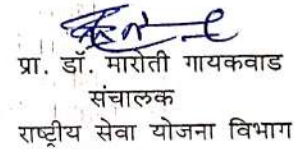 प्रा. डॉ. मारोती गायकवाड
संचालक
राष्ट्रीय सेवा योजना विभाग